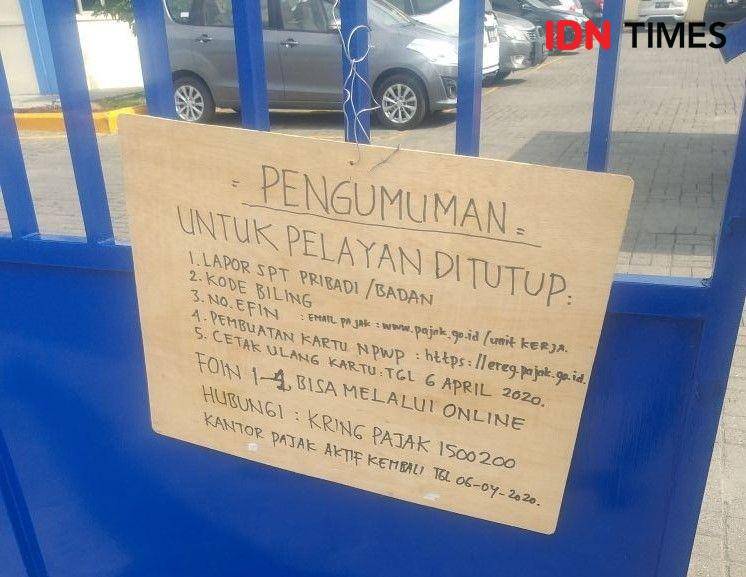 IDN TIMES
= PENGUMUMAN =
UNTUK PELAYAN DITUTUP:
1. LAPOR SPT PRIBADI / BADAN
2. KODE BILING
3. NO. EFIN : EMAIL PAJAK : www.pajak.go.id / unit KERJA.
4. PEMBUATAN KARTU NPWP : https://ereg.pajak.go.id.
5. CETAK ULANG KARTU. TGL 6 APRIL 2020.
FOIN 1-4 BISA MELALUI ONLINE
HUBUNGI : KRING PAJAK 1500200
KANTOR PAJAK AKTIF KEMBALI TGL 06-04-2020.